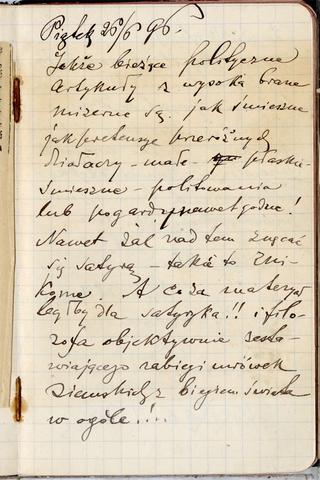 Piątek 26/6 96.
Jakże bieżące polityczne
artykuły z wysoka brane
mizerne są. jak śmieszne
jak pretensye przeróżnych
działaczy - małe - płaskie -
śmieszne - politowania
lub pogardy nawet godne!
Nawet żal nad tem znęcać
się satyrą - takie to zni-
kome. A coża materyał
ległby dla satyryka!! i filo-
zofa objektywnie zesta-
wiającego zabiegi mrówek
ziemskich z biegiem świata
w ogóle!...